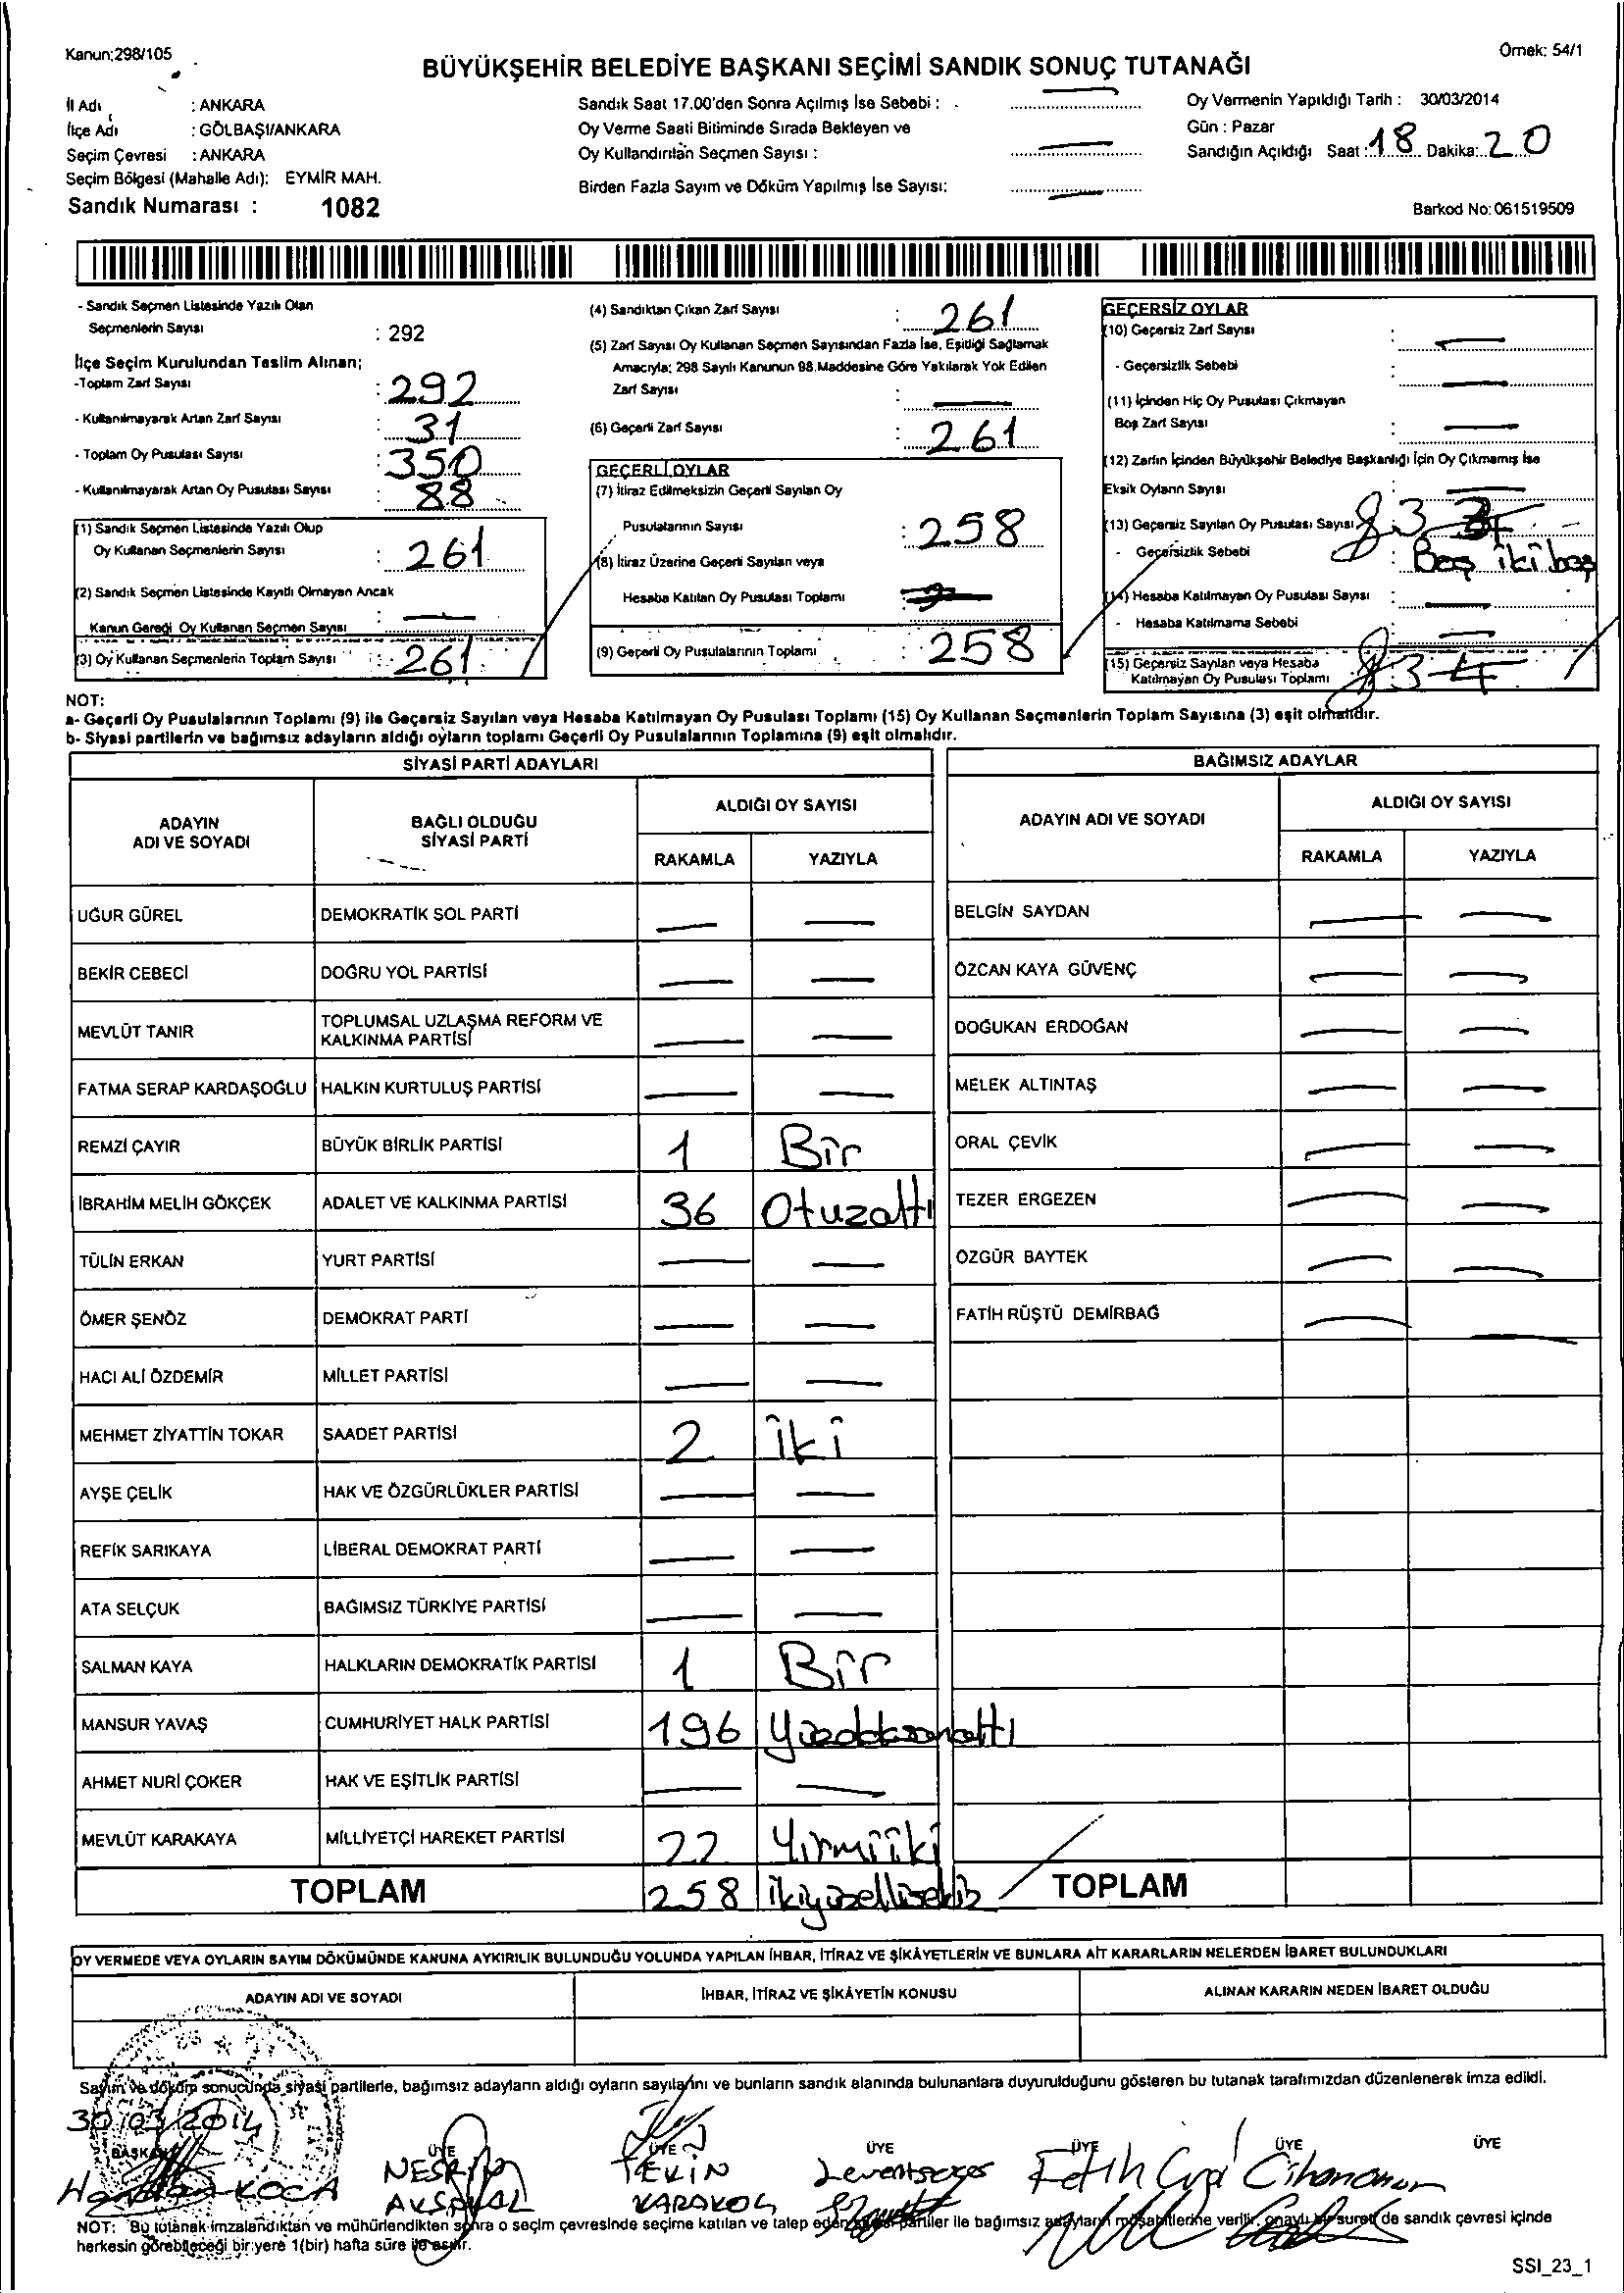 Kanun;298/105
Örnek: 54/1
BÜYÜKŞEHİR BELEDİYE BAŞKANI SEÇİMİ SANDIK SONUÇ TUTANAĞI
İl Adı : ANKARA
İlçe Adı : GÖLBAŞI/ANKARA
Seçim Çevresi : ANKARA
Seçim Bölgesi (Mahalle Adı): EYMİR MAH.
Sandık Numarası : 1082
Sandık Saat 17.00'den Sonra Açılmış İse Sebebi :
Oy Verme Saati Bitiminde Sırada Bekleyen ve
Oy Kullandırılan Seçmen Sayısı :
Birden Fazla Sayım ve Döküm Yapılmış İse Sayısı:
Oy Vermenin Yapıldığı Tarih : 30/03/2014
Gün : Pazar
Sandığın Açıldığı Saat : 18 Dakika: 20
Barkod No: 061519509
- Sandık Seçmen Listesinde Yazılı Olan
Seçmenlerin Sayısı : 292
İlçe Seçim Kurulundan Teslim Alınan;
-Toplam Zarf Sayısı : 292
- Kullanılmayarak Artan Zarf Sayısı : 31
- Toplam Oy Pusulası Sayısı : 350
- Kullanılmayarak Artan Oy Pusulası Sayısı : 88
(1) Sandık Seçmen Listesinde Yazılı Olup
Oy Kullanan Seçmenlerin Sayısı : 261
(2) Sandık Seçmen Listesinde Kayıtlı Olmayan Ancak
Kanun Gereği Oy Kullanan Seçmen Sayısı :
(3) Oy Kullanan Seçmenlerin Toplam Sayısı : 261
(4) Sandıktan Çıkan Zarf Sayısı : 261
(5) Zarf Sayısı Oy Kullanan Seçmen Sayısından Fazla İse, Eşitliği Sağlamak
Amacıyla; 298 Sayılı Kanunun 98.Maddesine Göre Yakılarak Yok Edilen
Zarf Sayısı :
(6) Geçerli Zarf Sayısı : 261
GEÇERLİ OYLAR
(7) İtiraz Edilmeksizin Geçerli Sayılan Oy
Pusulalarının Sayısı : 258
(8) İtiraz Üzerine Geçerli Sayılan veya
Hesaba Katılan Oy Pusulası Toplamı :
(9) Geçerli Oy Pusulalarının Toplamı : 258
GEÇERSİZ OYLAR
(10) Geçersiz Zarf Sayısı :
- Geçersizlik Sebebi :
(11) İçinden Hiç Oy Pusulası Çıkmayan
Boş Zarf Sayısı :
(12) Zarfın İçinden Büyükşehir Belediye Başkanlığı İçin Oy Çıkmamış İse
Eksik Oyların Sayısı :
(13) Geçersiz Sayılan Oy Pusulası Sayısı 3
- Geçersizlik Sebebi : Boş iki boş
(14) Hesaba Katılmayan Oy Pusulası Sayısı :
- Hesaba Katılmama Sebebi :
(15) Geçersiz Sayılan veya Hesaba
Katılmayan Oy Pusulası Toplamı 3
NOT:
a- Geçerli Oy Pusulalarının Toplamı (9) ile Geçersiz Sayılan veya Hesaba Katılmayan Oy Pusulası Toplamı (15) Oy Kullanan Seçmenlerin Toplam Sayısına (3) eşit olmalıdır.
b- Siyasi partilerin ve bağımsız adayların aldığı oyların toplamı Geçerli Oy Pusulalarının Toplamına (9) eşit olmalıdır.
SİYASİ PARTİ ADAYLARI
ADAYIN ADI VE SOYADI
BAĞLI OLDUĞU SİYASİ PARTİ
ALDIĞI OY SAYISI
RAKAMLA YAZIYLA
UĞUR GÜREL DEMOKRATİK SOL PARTİ
BEKİR CEBECİ DOĞRU YOL PARTİSİ
MEVLÜT TANIR TOPLUMSAL UZLAŞMA REFORM VE
KALKINMA PARTİSİ
FATMA SERAP KARDAŞOĞLU HALKIN KURTULUŞ PARTİSİ
REMZİ ÇAYIR BÜYÜK BİRLİK PARTİSİ 1 Bir
İBRAHİM MELİH GÖKÇEK ADALET VE KALKINMA PARTİSİ 36 Otuzaltı
TÜLİN ERKAN YURT PARTİSİ
ÖMER ŞENÖZ DEMOKRAT PARTİ
HACI ALİ ÖZDEMİR MİLLET PARTİSİ
MEHMET ZİYATTİN TOKAR SAADET PARTİSİ 2 iki
AYŞE ÇELİK HAK VE ÖZGÜRLÜKLER PARTİSİ
REFİK SARIKAYA LİBERAL DEMOKRAT PARTİ
ATA SELÇUK BAĞIMSIZ TÜRKİYE PARTİSİ
SALMAN KAYA HALKLARIN DEMOKRATİK PARTİSİ 1 Bir
MANSUR YAVAŞ CUMHURİYET HALK PARTİSİ 196 Yüzdoksanaltı
AHMET NURİ ÇOKER HAK VE EŞİTLİK PARTİSİ
MEVLÜT KARAKAYA MİLLİYETÇİ HAREKET PARTİSİ 22 Yirmiiki
TOPLAM 258 ikiyüzellisekiz
BAĞIMSIZ ADAYLAR
ADAYIN ADI VE SOYADI
ALDIĞI OY SAYISI
RAKAMLA YAZIYLA
BELGİN SAYDAN
ÖZCAN KAYA GÜVENÇ
DOĞUKAN ERDOĞAN
MELEK ALTINTAŞ
ORAL ÇEVİK
TEZER ERGEZEN
ÖZGÜR BAYTEK
FATİH RÜŞTÜ DEMİRBAĞ
TOPLAM
OY VERMEDE VEYA OYLARIN SAYIM DÖKÜMÜNDE KANUNA AYKIRILIK BULUNDUĞU YOLUNDA YAPILAN İHBAR, İTİRAZ VE ŞİKÂYETLERİN VE BUNLARA AİT KARARLARIN NELERDEN İBARET BULUNDUKLARI
ADAYIN ADI VE SOYADI İHBAR, İTİRAZ VE ŞİKÂYETİN KONUSU ALINAN KARARIN NEDEN İBARET OLDUĞU
Sayım ve döküm sonucunda siyasi partilerle, bağımsız adayların aldığı oyların sayılarını ve bunların sandık alanında bulunanlara duyurulduğunu gösteren bu tutanak tarafımızdan düzenlenerek imza edildi.
30/03/2014
BAŞKAN ÜYE ÜYE ÜYE ÜYE ÜYE ÜYE
KOCA NESRİN AKSAKAL TEKİN KARAKOÇ Fatih
NOT: Bu tutanak imzalandıktan ve mühürlendikten sonra o seçim çevresinde seçime katılan ve talep eden siyasi partiler ile bağımsız adayların müşahitlerine verilir, onaylı bir sureti de sandık çevresi içinde
herkesin görebileceği bir yere 1(bir) hafta süre ile asılır.
SSI_23_1